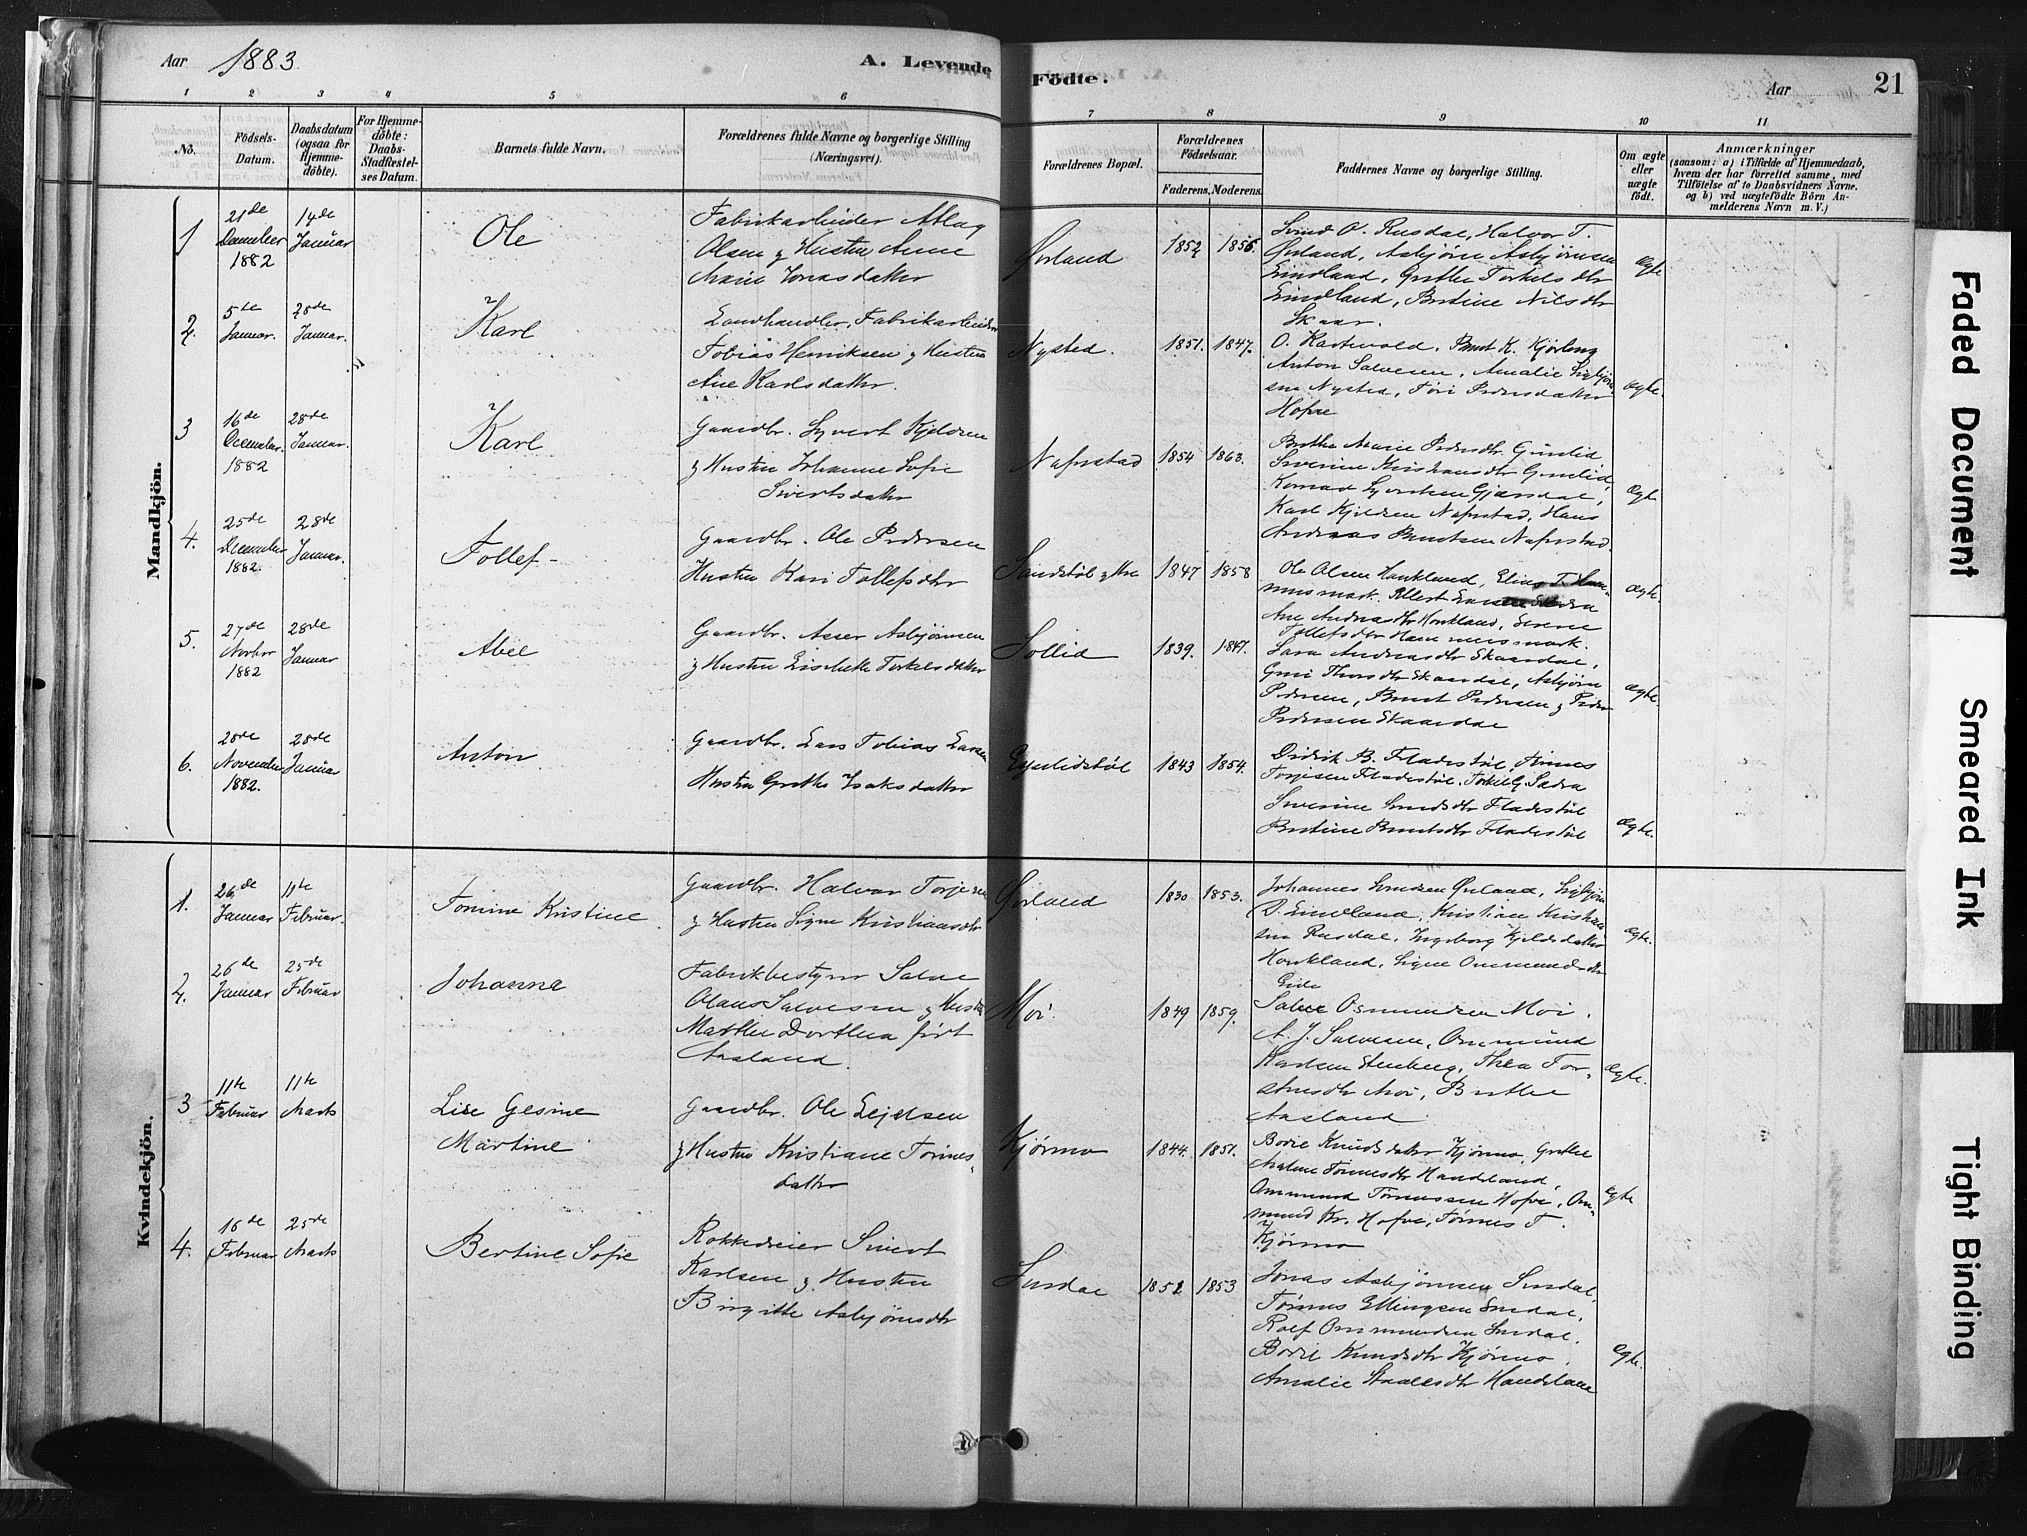 Aar 1883
A. Levende Födte.
Aar
21
1 2 3 4 5 6 7 8 9 10 11
No.
Födsels-Datum.
Daabsdatum (ogsaa for Hjemme-döbte).
For Hjemme-döbte: Daabs-Stadfæstel-ses Datum.
Barnets fulde Navn.
Forældrenes fulde Navne og borgerlige Stilling (Næringsvei).
Forældrenes Bopæl.
Forældrenes Födselsaar.
Faderens. Moderens.
Faddernes Navne og borgerlige Stilling.
Om ægte eller uægte födt.
Anmærkninger
(saasom: a) i Tilfælde af Hjemmedaab,
hvem der har forrettet samme, med
Tilföielse af to Daabsvidners Navne,
og b) ved uægtefödte Börn An-
melderens Navn m. V.)
Mandkjön.
1
21de December 1882
14de Januar
Ole
Fabrikarbeider Atlag
Olsen & Hustru Anne
Marie Jonasdatter
Ørland
1852 1856
Svend O. Rusdal, Halvor T.
Ørland, Asbjörn Asbjörnsen
Eindland, Grethe Torkelsdtr
Eindland, Bertine Nilsdtr
Skaar.
Ægte
2.
5te Januar.
28de Januar.
Karl
Landhandler, Fabrikarbeider
Tobias Henriksen & Hustru
Ane Karlsdatter.
Nysted.
1851. 1847.
Anton Salvesen, Amalie Sigbjörn-
sen Nysted, Töri Pedersdatter
Hofve
Ægte.
3
16de December 1882
28de Januar.
Karl
Gaardbr. Syvert Kjeldsen
& Hustru Johanne Sofie
Sivertsdatter
Nafrstad
1854 1863.
Berthe Marie Pedersdtr Gunlid
Severine Kristiansdtr Gunlid,
Konrad Syvertsen Gjersdal,
Karl Kjeldsen Nafrstad, Hans
Andreas Berntsen Nafrstad.
Ægte
4.
25de December 1882.
28de Januar.
Tollef-
Gaardbr. Ole Pedersen
Hustru Kari Tollefsdtr
Sandstöl ytre
1847 1858
Ole Olsen Haukland, Elias T. Ham-
mersmark.
Ane Andreasdtr Haukland, Serene
Tollefsdtr Hammersmark.
Ægte.
5.
27de Novbr 1882
28de Januar
Abel
Gaardbr. Asser Asbjörnsen
& Hustru Lisebeth Torkelsdatter
Sollid
1839. 1847.
Sara Andreasdtr Skaardal,
Guri Thorsdtr Skaardal, Asbjörn
Pedersen, Bernt Pedersen & Peder
Pedersen Skaardal
Ægte.
6.
28de November 1882.
28de Januar
Anton
Gaardbr. Lars Tobias Larsen
Hustru Grethe Isaksdatter
Eyelidstöl
1843 1854.
Didrik B. Fladestöl, Tönnes
Torjesen Fladestöl, Torkel G. Sædra
Severine Svendsdtr Fladestöl
Bertine Berntsdtr Fladestöl
Ægte.
Kvindekjön.
1.
26de Januar
11te Februar.
Tomine Kristine
Gaardbr. Halvor Torjesen
& Hustru Signe Kristiansdtr
Ørland
1830 1853.
Johannes Svendsen Ørland, Sigbjörn
S. Eindland, Kristian Kristian-
sen Rusdal, Ingeborg Kjeldsdatter
Haukland, Signe Ommundsdtr
Eide
Ægte.
2.
26de Januar
25de Februar
Johanna
Fabrikbestyrer Salve
Olaus Salvesen & Hustru
Marthe Dorthea født
Aasland.
Moi
1849 1859.
Salve Osmundsen Moi,
A. J. Salvesen, Ommund
Karlsen Stenberg, Thea Tor-
Moi, Berthe
Aasland
Ægte.
3
11te Februar
11te Marts
Lise Gesine
Martine
Gaardbr. Ole Eyelsen
& Hustru Kristiane Tönnes-
datter
Kjörmo
1844. 1851.
Bodil Knudsdatter Kjörmo, Grethe
Malene Tönnesdtr Handeland,
Ommund Tönnessen Hofve, Om-
mund Kr. Hofve, Tönnes T.
Kjörmo
Ægte
4.
16de Februar
25de Marts
Bertine Sofie
Rokkedreier Sivert
Karlsen & Hustru
Birgitte Asbjörnsdtr
Surdal
1852 1853
Jonas Asbjörnsen Surdal,
Tönnes Ellingsen Surdal,
Rolf Ommundsen Surdal,
Bodil Knudsdtr Kjörmo,
Amalie Staalesdtr Handeland
Ægte.
Faded Document
Smeared Ink
Tight Binding